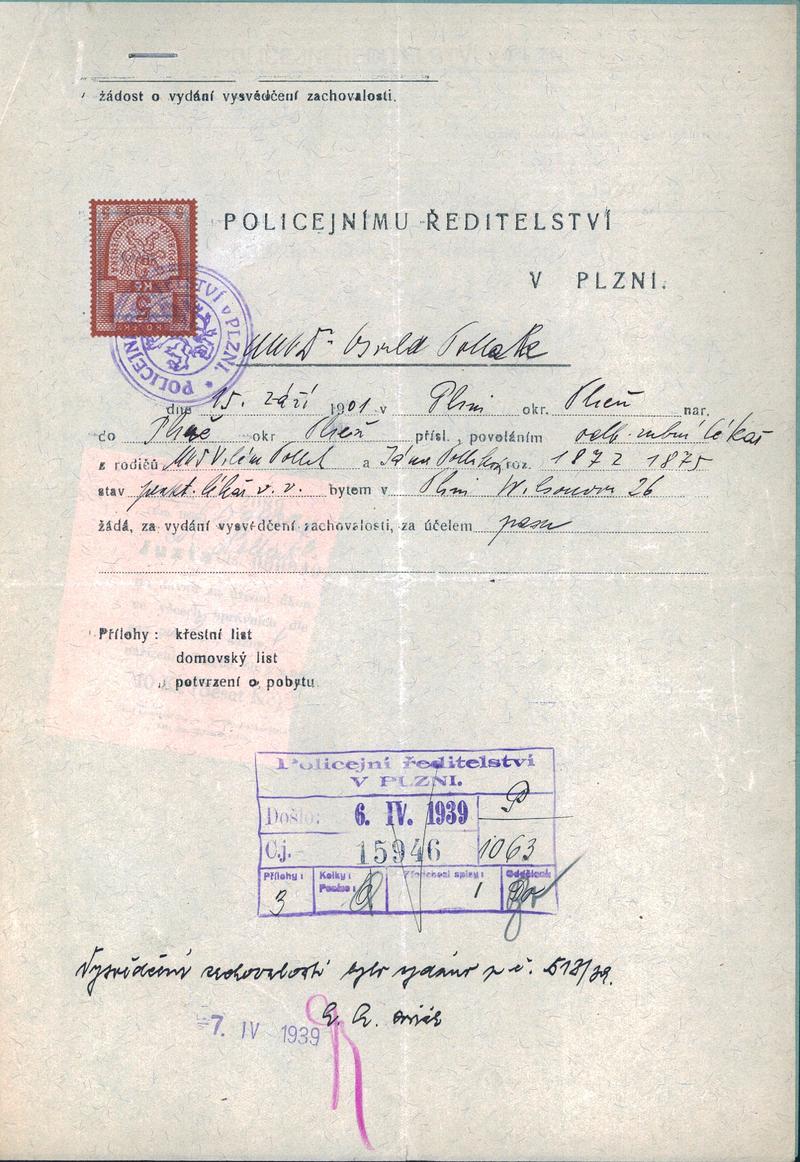 žádost o vydání vysvědčení zachovalosti.
POLICEJNÍMU ŘEDITELSTVÍ
V PLZNI.
5
Kč
POLICEJNÍ ŘEDITELSTVÍ V PLZNI.
MUDr Osvald Pollak
dne 15. září 1901 v Plzni okr. Plzeň nar.
do okr Plzeň přísl., povoláním odb. zubní lékař
z rodičů MUDr Vilém Pollak a roz. 1872 1875
stav prakt. lékař v. v. bytem v Plzni Wilsonova 26
žádá, za vydání vysvědčení zachovalosti, za účelem pasu
Přílohy: křestní list
domovský list
potvrzení o pobytu
Policejní ředitelství
V PLZNI.
Došlo: 6. IV. 1939 P
Čj. 15946 1063
Přílohy: Kolky: Předchozí spisy: Oddělení
3 1
Vysvědčení zachovalosti bylo vydáno p. č. 513/39.
7. IV 1939